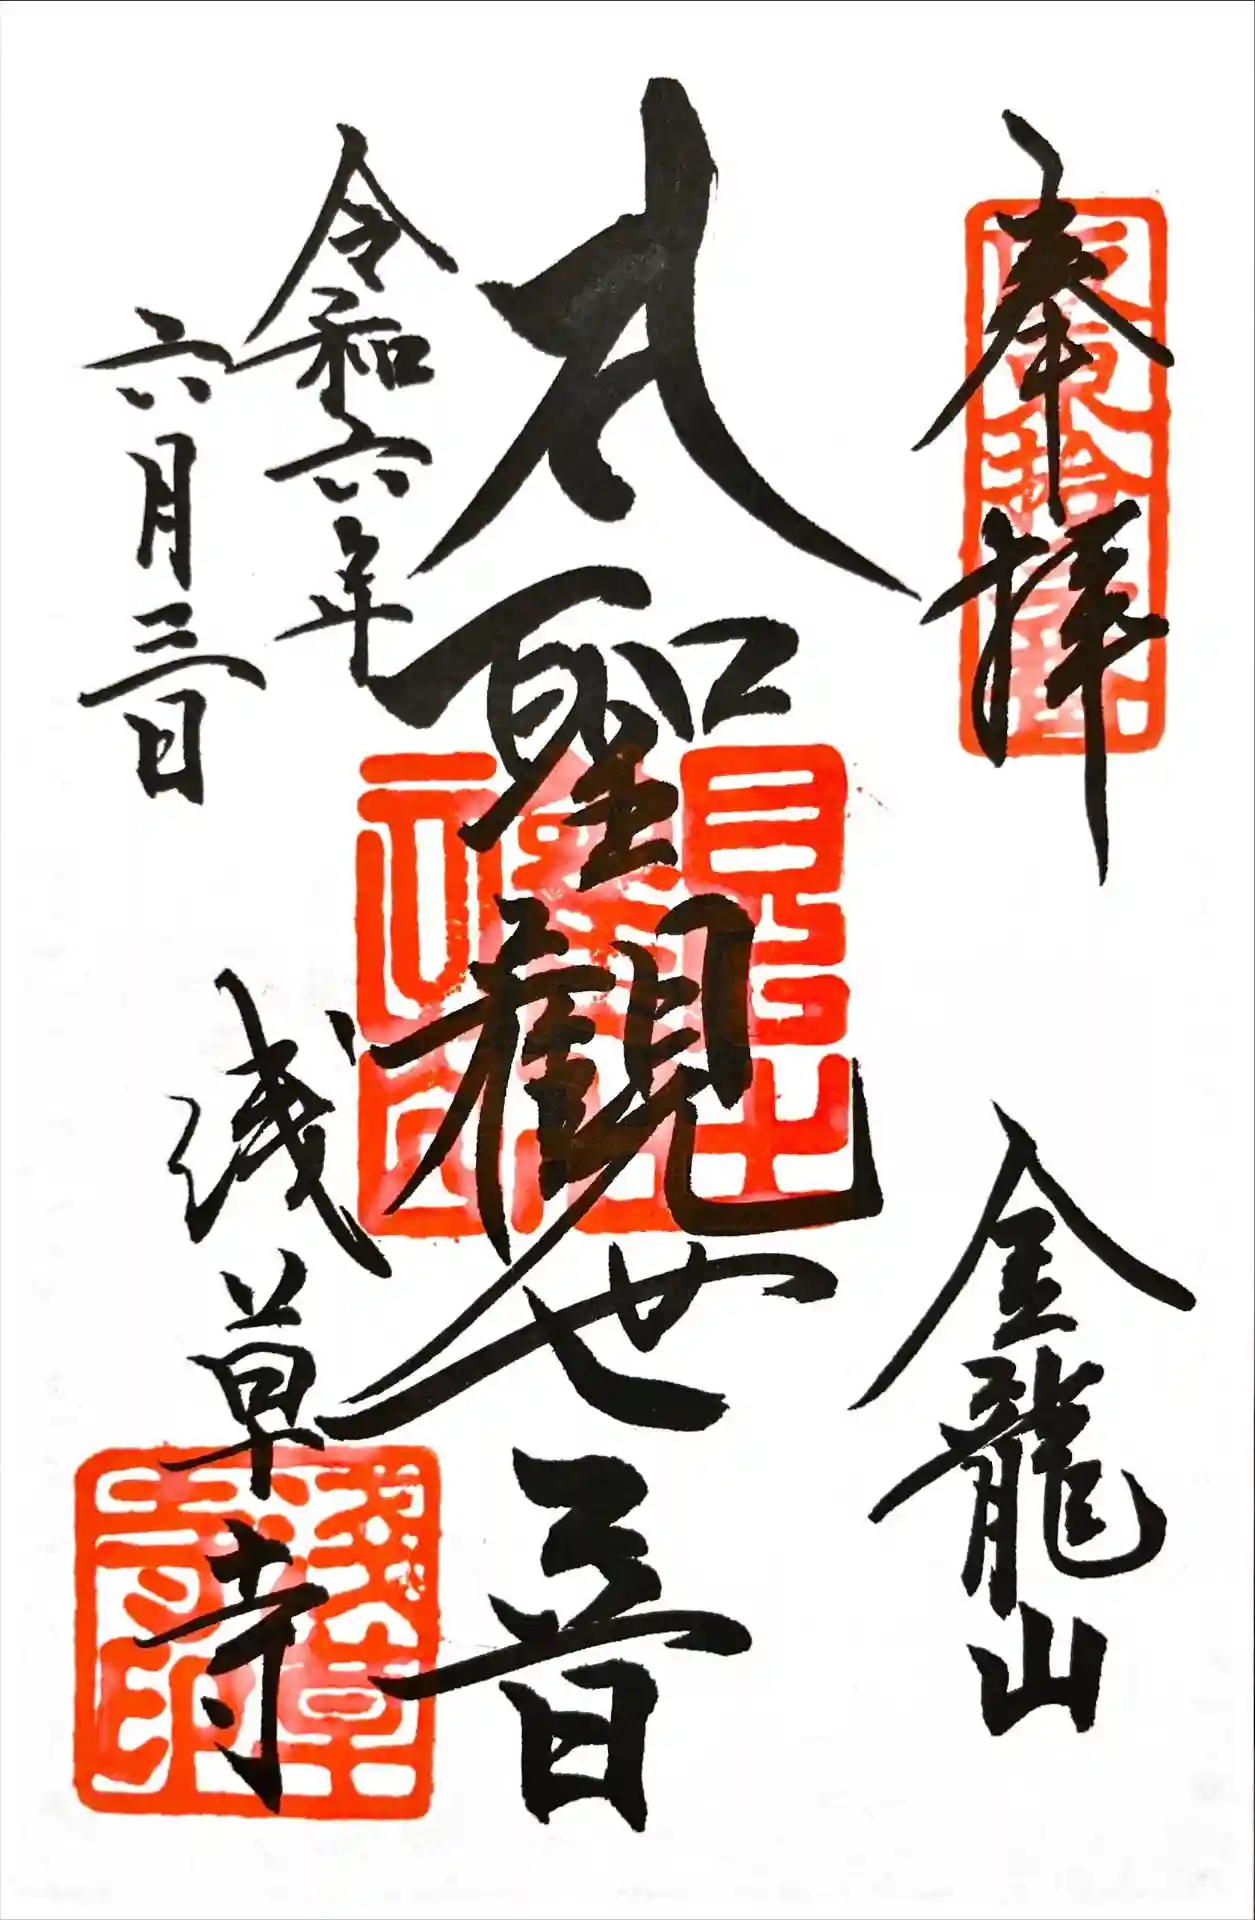 奉拝
金龍山
大聖観世音
令和六年
六月三日
浅草寺
淺草
寺印